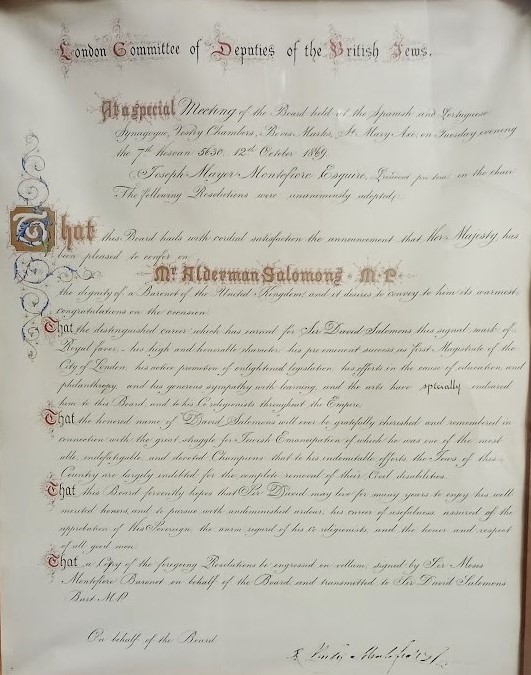 London Committee of Deputies of the British Jews.
At a special Meeting of the Board held at the Spanish and Portuguese
Synagogue, Vestry Chambers, Bevis Marks, St. Mary Axe, on Tuesday evening
the 7th Hesvan 5630. 12th October 1869.
Joseph Mayer Montefiore Esquire, President pro tem: in the chair
The following Resolutions were unanimously adopted:
That this Board hails with cordial satisfaction the announcement that Her Majesty has
been pleased to confer on
Mr Alderman Salomons M.P.
the dignity of a Baronet of the United Kingdom, and it desires to convey to him its warmest
congratulations on the occasion.
That the distinguished career which has earned for Sir David Salomons this signal mark of
Royal favor, his high and honorable character, his preeminent success as first Magistrate of the
City of London, his active promotion of enlightened legislation, his efforts in the cause of education and
philanthropy and his generous sympathy with learning, and the arts have specially endeared
him to this Board, and to his Co-religionists throughout the Empire.
That the honored name of David Salomons will ever be gratefully cherished and remembered in
connection with the great struggle for Jewish Emancipation of which he was one of the most
able, indefatigable, and devoted Champions that to his indomitable efforts the Jews of this
Country are largely indebted for the complete removal of their Civil disabilities.
That this Board fervently hopes that Sir David may live for many years to enjoy his well
merited honors, and to pursue with undiminished ardour, his career of usefulness, assured of the
approbation of his Sovereign, the warm regard of his co-religionists, and the honor and respect
of all good men.
That a Copy of the foregoing Resolutions be engrossed on vellum, signed by Sir Moses
Montefiore Baronet on behalf of the Board, and transmitted to Sir David Salomons
Bart M.P.
On behalf of the Board
Montefiore